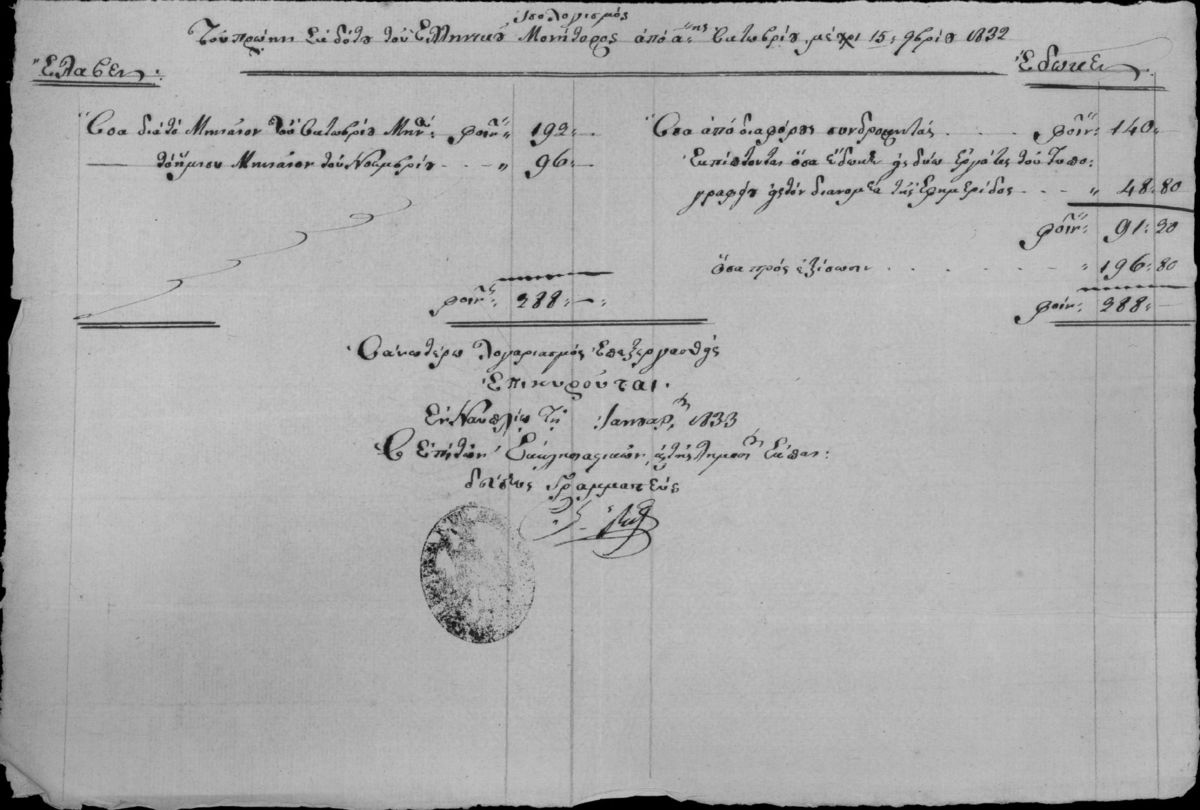 Ἰσολογισμός
Τοῦ πρώην Ἐκδότου τοῦ Ἑλληνικοῦ Μονήτορος ἀπὸ α ης Ὀκτωβρίου μέχρι 15 9βρίου 1832
Ἔλαβεν Ἔδωκεν
Ὅσα διὰ τὸ Μηνιαῖον τοῦ Ὀκτωβρίου Μην: φοίν: 192 —
— τὸ ἥμισυ Μηνιαῖον τοῦ Νοεμβρίου - - - " 96 —
φοίν: 288 —
Ὅσα ἀπὸ διαφόρους συνδρομητάς . . . . φοίν: 140 —
Ἐκπίπτονται ὅσα ἔδωκε εἰς δύω ἐργάτας τοῦ Τυπο-
γραφείου εἰς τὸν διανομέα τῆς Ἐφημερίδος - - - " 48:80
φοίν: 91:20
ὅσα πρὸς ἐξίσωσιν . . . . . " 196:80
φοίν: 288 —
Ὁ ἀνωτέρω Λογαριασμός ἐπεξεργασθείς
Ἐπικυροῦται.
Ἐν Ναυπλίῳ τῇ Ἰανουαρ. 1833
Ὁ Ἐπὶ τῶν Ἐκκλησιαστικῶν καὶ τῆς Δημοσί Ἐκπαι-
δεύσεως Γραμματεύς